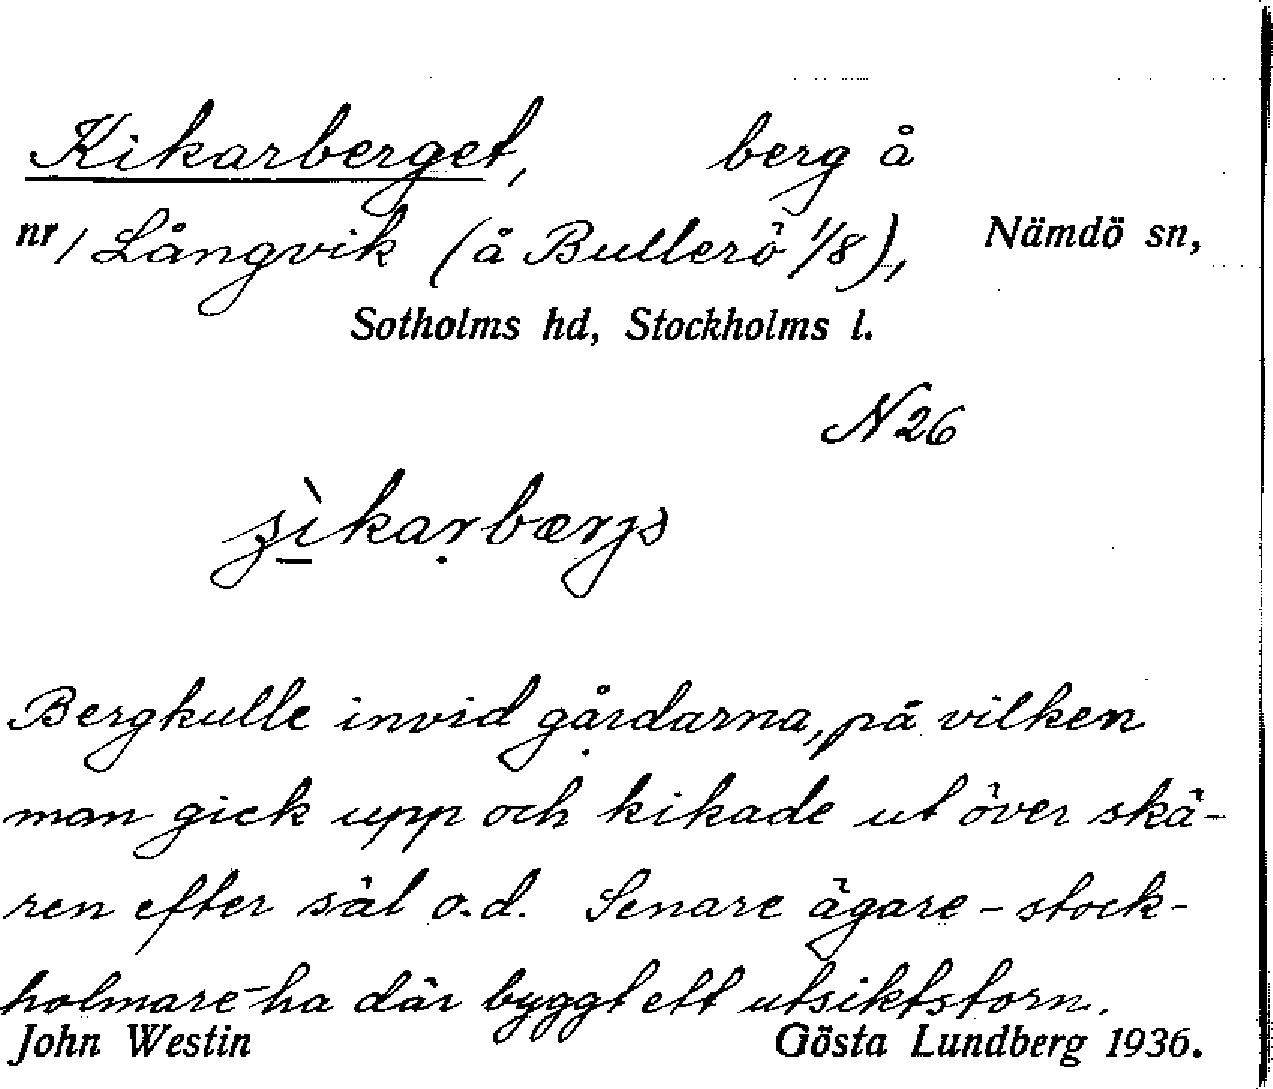 Kikarberget, berg å
nr 1 Långvik (å Bullerö 1/8), Nämdö sn,
Sotholms hd, Stockholms l.
N 26
Bergkulle invid gårdarna, på vilken
man gick upp och kikade ut över skä-
ren efter säl o.d. Senare ägare - stock-
holmare - ha där byggt ett utsiktstorn.
John Westin Gösta Lundberg 1936.